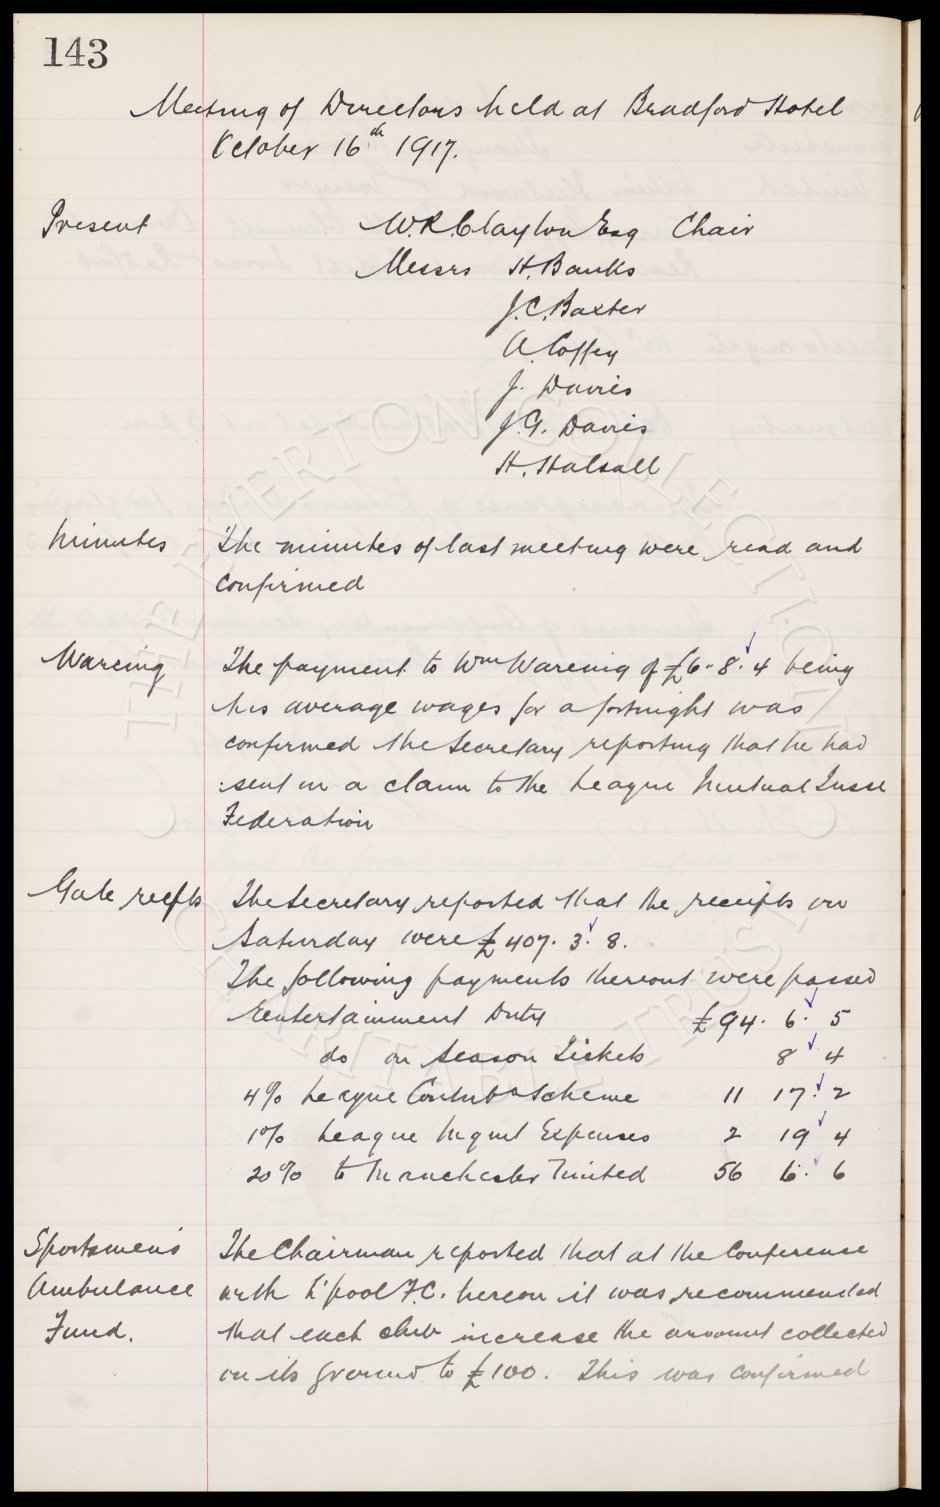 143
Meeting of Directors held at Bradford Hotel
October 16th 1917.
Present W.R. Clayton Esq Chair
Messrs H. Banks
J.C. Baxter
A. Coffey
J. Davies
J.G. Davies
H. Halsall
Minutes The minutes of last meeting were read and
confirmed
Wareing The payment to Wm Wareing of £6. 8. 4 being
his average wages for a fortnight was
confirmed the Secretary reporting that he had
sent in a claim to the League Mutual Insce
Federation
Gate recpts The Secretary reported that the receipts on
Saturday were £407. 3. 8.
The following payments thereout were passed
Entertainment Duty £94. 6. 5
do on Season Tickets 8 4
4% League Contribn Scheme 11 17. 2
1% League Mgmt Expenses 2 19 4
20% to Manchester United 56 6. 6
Sportsmen's The Chairman reported that at the Conference
Ambulance with L'pool F.C. hereon it was recommended
Fund. that each club increase the amount collected
on its ground to £100. This was confirmed
THE EVERTON COLLECTION
CHARITABLE TRUST